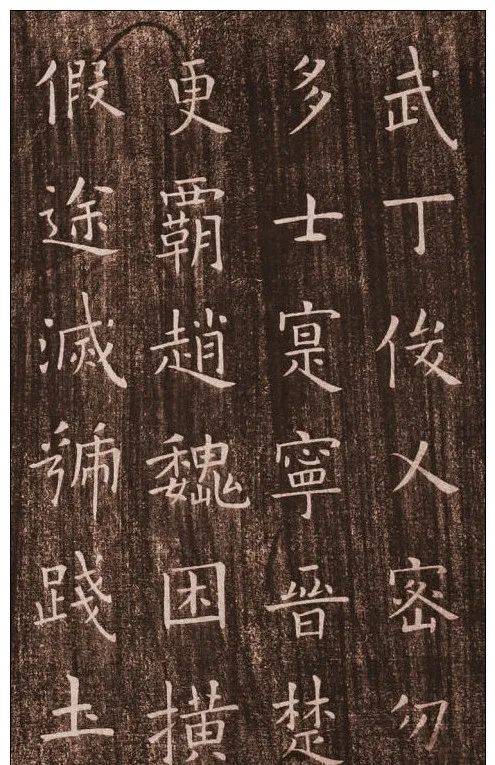 武丁俊乂密勿
多士寔寧晉楚
更霸趙魏困橫
假途滅虢踐土